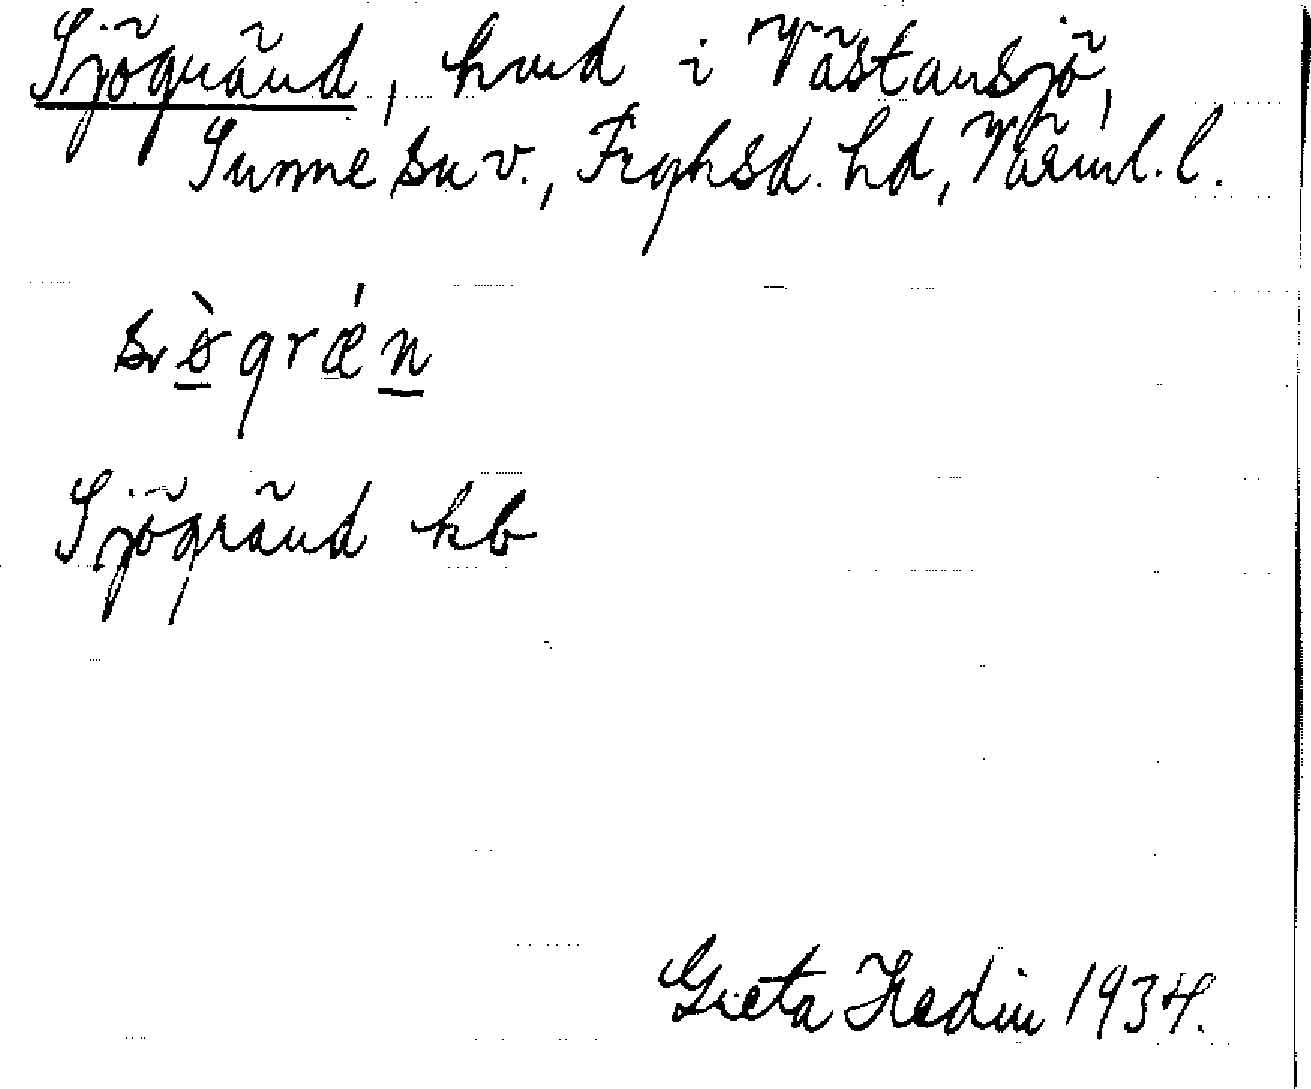 Sjögränd, hmd i Västansjö,
Sunne sn v., Fryksd. hd, Värml. l.
Sjögränd kb
Greta Hedin 1934.